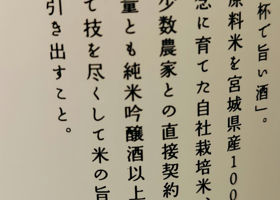 杯で旨い酒」。
原料米を宮城県産100
念に育てた自社栽培米、
少数農家との直接契約
量とも純米吟醸酒以上
て技を尽くして米の旨
引き出すこと。